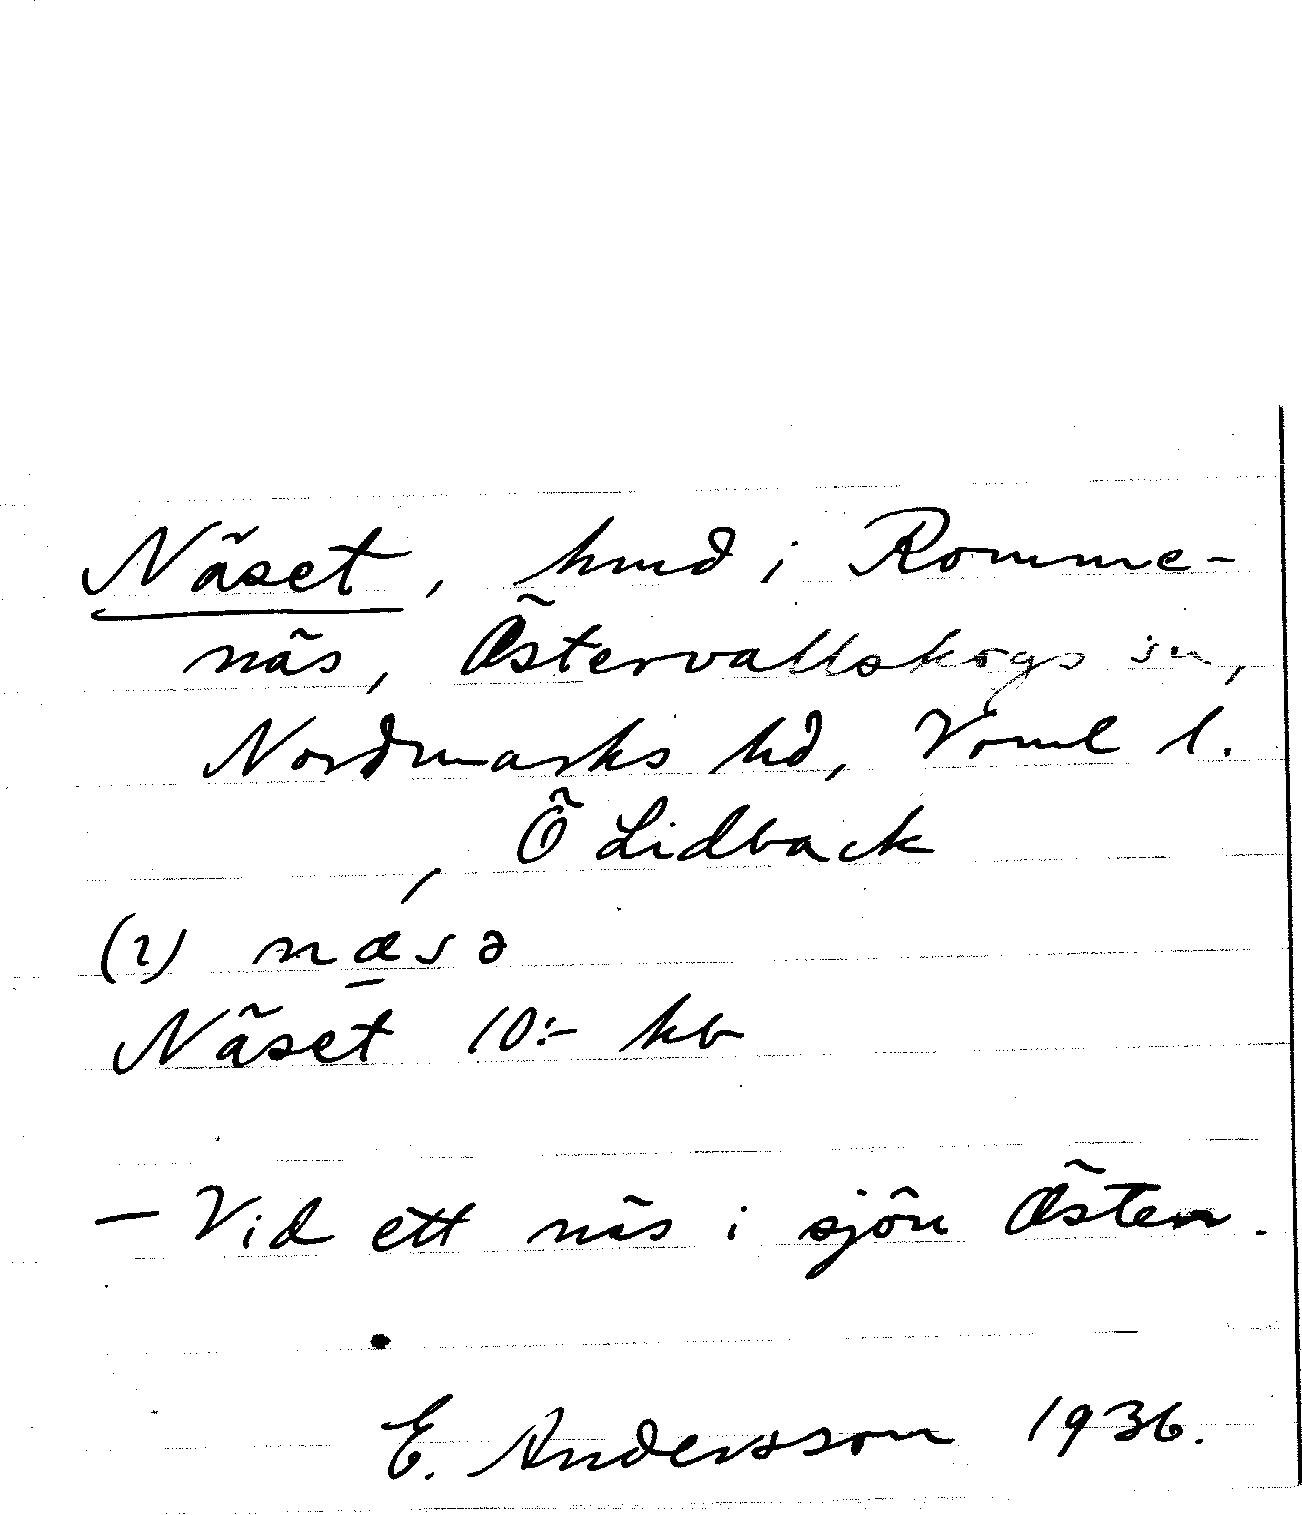 Näset, hmd i Romme-
näs, Östervallskogs sn,
Nordmarks hd, Vrml l.
Ö Lidback
(i) næ̱sə
Näset 10:- kb
— Vid ett näs i sjön Östen.
E. Andersson 1936.